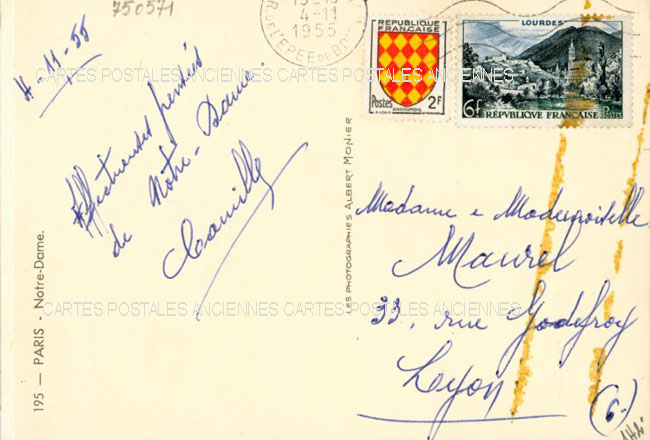 750571
4-11
1955
R. DE L'EPEE DE BO
4-11-55
Affectueuses pensées
de Notre-Dame.
195 — PARIS - Notre-Dame.
LES PHOTOGRAPHIES ALBERT MONIER
REPUBLIQUE
FRANÇAISE
Postes 2F
ANGOUMOIS
LOURDES
6F RÉPUBLIQUE FRANÇAISE Postes
Madame e Mademoiselle
Maurel
33, rue Godefroy
Lyon
(6)
CARTES POSTALES ANCIENNES CARTES POSTALES ANCIENNES
CARTES POSTALES ANCIENNES CARTES POSTALES ANCIENNES